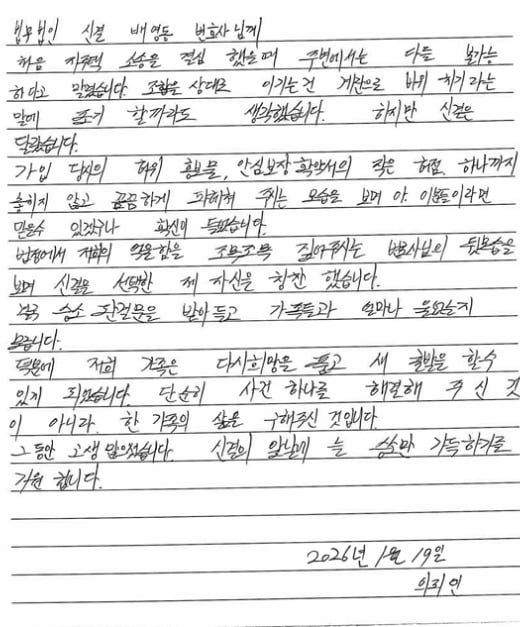 법무법인 신결 배영동 변호사님께
처음 지주택 소송을 결심 했을때 주변에서는 다들 불가능
하다고 말렸습니다. 조합을 상대로 이기는건 계란으로 바위 치기라는
말에 포기 할까라도 생각했습니다. 하지만 신결은
달랐습니다.
가입 당시의 허위 홍보물, 안심보장확약서의 작은 허점 하나까지
놓치지 않고 꼼꼼하게 파헤쳐 주는 모습을 보며 아 이분들이라면
믿을수 있겠구나 확신이 들었습니다.
법정에서 저희의 억울함을 조목조목 짚어주시는 변호사님의 뒷모습을
보며 신결을 선택한 제 자신을 칭찬 했습니다.
결국 승소 판결문을 받아들고 가족들과 얼마나 울었는지
모릅니다.
덕분에 저희 가족은 다시희망을 품고 새 출발을 할수
있게 되었습니다. 단순히 사건 하나를 해결해 주신 것
이 아니라. 한 가족의 삶을 구해주신 것입니다.
그동안 고생 많으셨습니다. 신결의 앞날에 늘 승소만 가득하기를
기원 합니다.
2026년 1월 19일
의뢰인